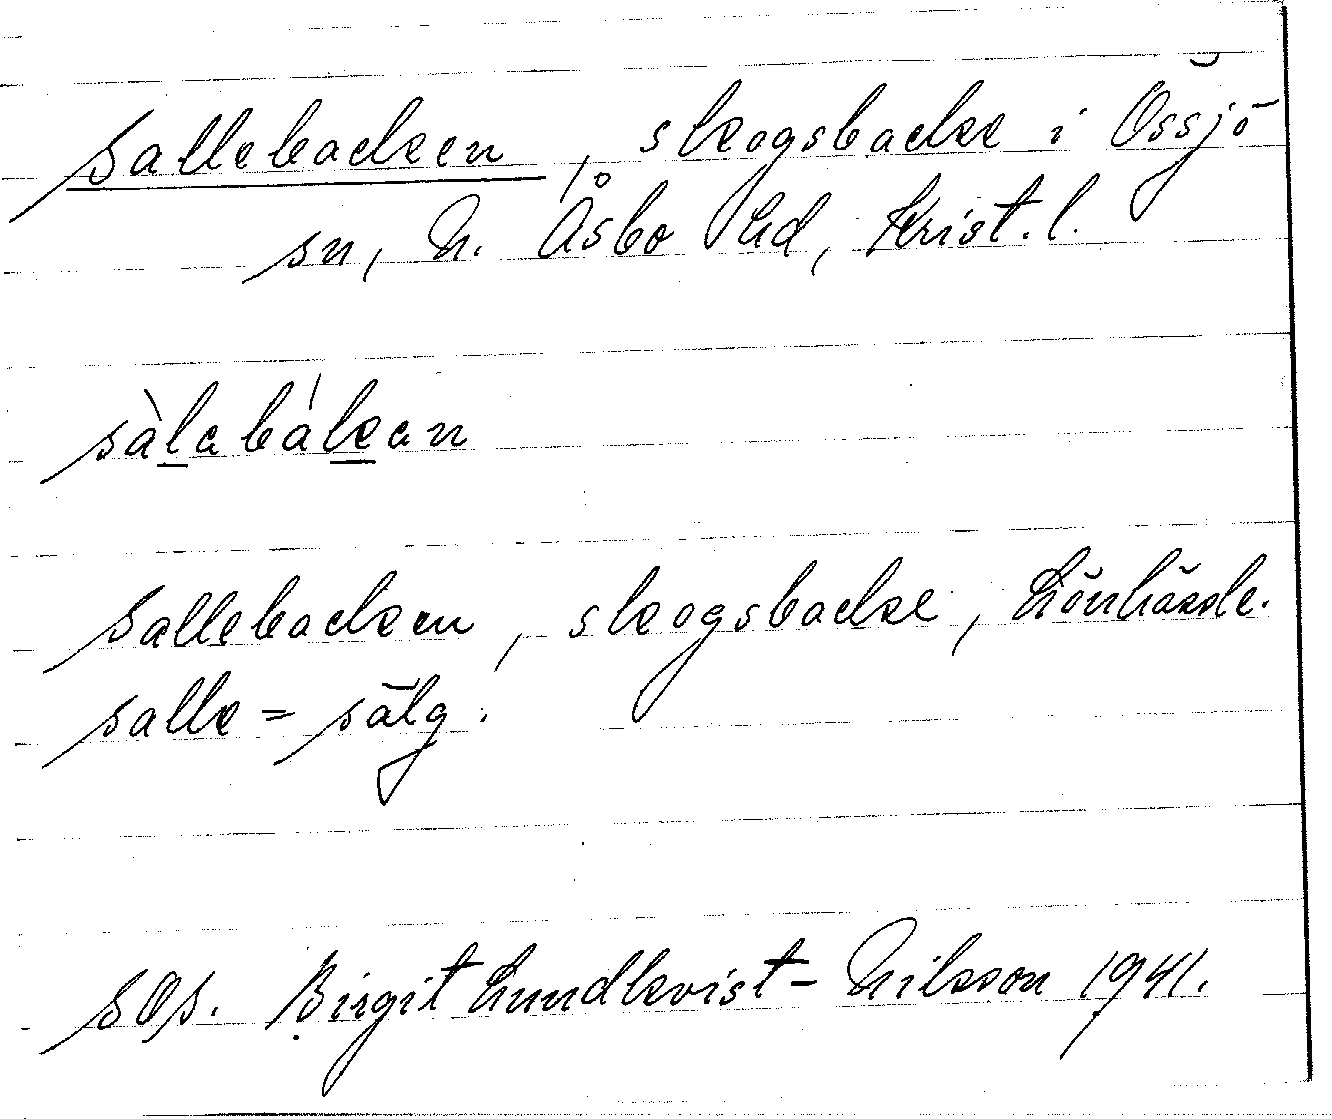 Sallebacken, skogsbacke i Össjö
sn, N. Åsbo hd, Krist. l.
sàlabákan
Sallebacken, skogsbacke, Lönhässle.
salle = sälg.
SOS. Birgit Lundkvist-Nilsson 1941.